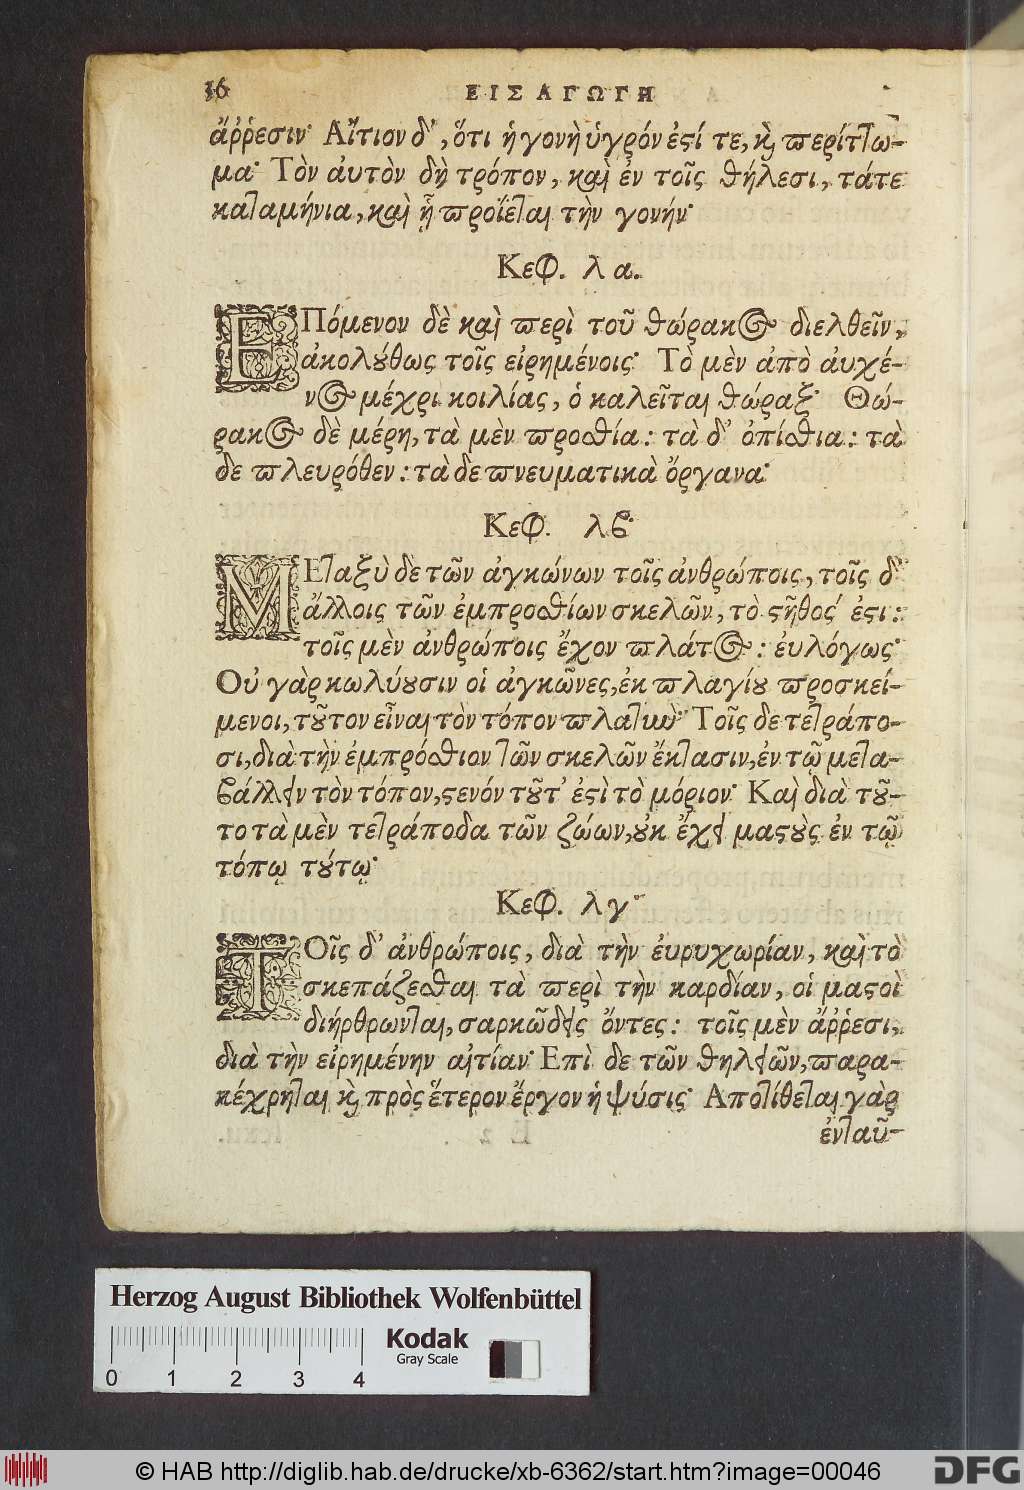 36 ΕΙΣΑΓΩΓΗ
ἄῤῥεσιν· Αἴτιον δ', ὅτι ἡ γονὴ ὑγρόν ἐςί τε, κ̀ περίτ͡ω-
μα· Τὸν ἀυτὸν δὴ τρόπον, καὶ ἐν τοῖς θήλεσι, τάτε
καταμήνια, καὶ ᾗ προΐεται τὴν γονήν·
Κεφ. λ α.
ΕΠόμενον δὲ καὶ περὶ τοῦ θώρακος διελθεῖν,
ἀκολȣ́θως τοῖς εἰρημένοις· Τὸ μὲν ἀπὸ ἀυχέ-
νος μέχρι κοιλίας, ὁ καλεῖται θώραξ· Θώ-
ρακος δὲ μέρη, τὰ μὲν προσθία: τὰ δ' ὀπίσθια: τὰ
δε πλευρόθεν: τὰ δε πνευματικὰ ὄργανα·
Κεφ. λϐ·
ΜΕταξὺ δε τῶν ἀγκώνων τοῖς ἀνθρώποις, τοῖς δ'
ἄλλοις τῶν ἐμπροσθίων σκελῶν, τὸ ςῆθος ἐςι:
τοῖς μὲν ἀνθρώποις ἔχον πλάτος: ἐυλόγως·
Οὐ γὰρ κωλύȣσιν οἱ ἀγκῶνες, ἐκ πλαγίȣ προσκεί-
μενοι, τȣ͂τον εἶναι τὸν τόπον πλατὺν· Τοῖς δε τετράπο-
σι, διὰ τὴν ἐμπρόσθιον τῶν σκελῶν ἔκτασιν, ἐν τῷ μετα-
ϐάλλειν τὸν τόπον, ςενόν τȣ͂τ' ἐςὶ τὸ μόριον· Καὶ διὰ τȣ͂-
το τὰ μὲν τετράποδα τῶν ζώων, ȣκ ἔχει μαςȣ̀ς ἐν τῷ
τόπῳ τȣ́τῳ·
Κεφ. λγ·
ΤΟῖς δ' ἀνθρώποις, διὰ τὴν ἐυρυχωρίαν, καὶ τὸ
σκεπάζεσθαι τὰ περὶ τὴν καρδίαν, οἱ μαςοὶ
διήρθρωνται, σαρκώδεις ὄντες: τοῖς μὲν ἄῤῥεσι,
διὰ τὴν εἰρημένην αἰτίαν· Επὶ δε τῶν θηλειῶν, παρα-
κέχρηται κ̀ πρὸς ἕτερον ἔργον ἡ ψύσις· Αποτίθεται γὰρ
ἐνταῦ-
Herzog August Bibliothek Wolfenbüttel
Kodak
Gray Scale
0 1 2 3 4
© HAB http://diglib.hab.de/drucke/xb-6362/start.htm?image=00046
DFG